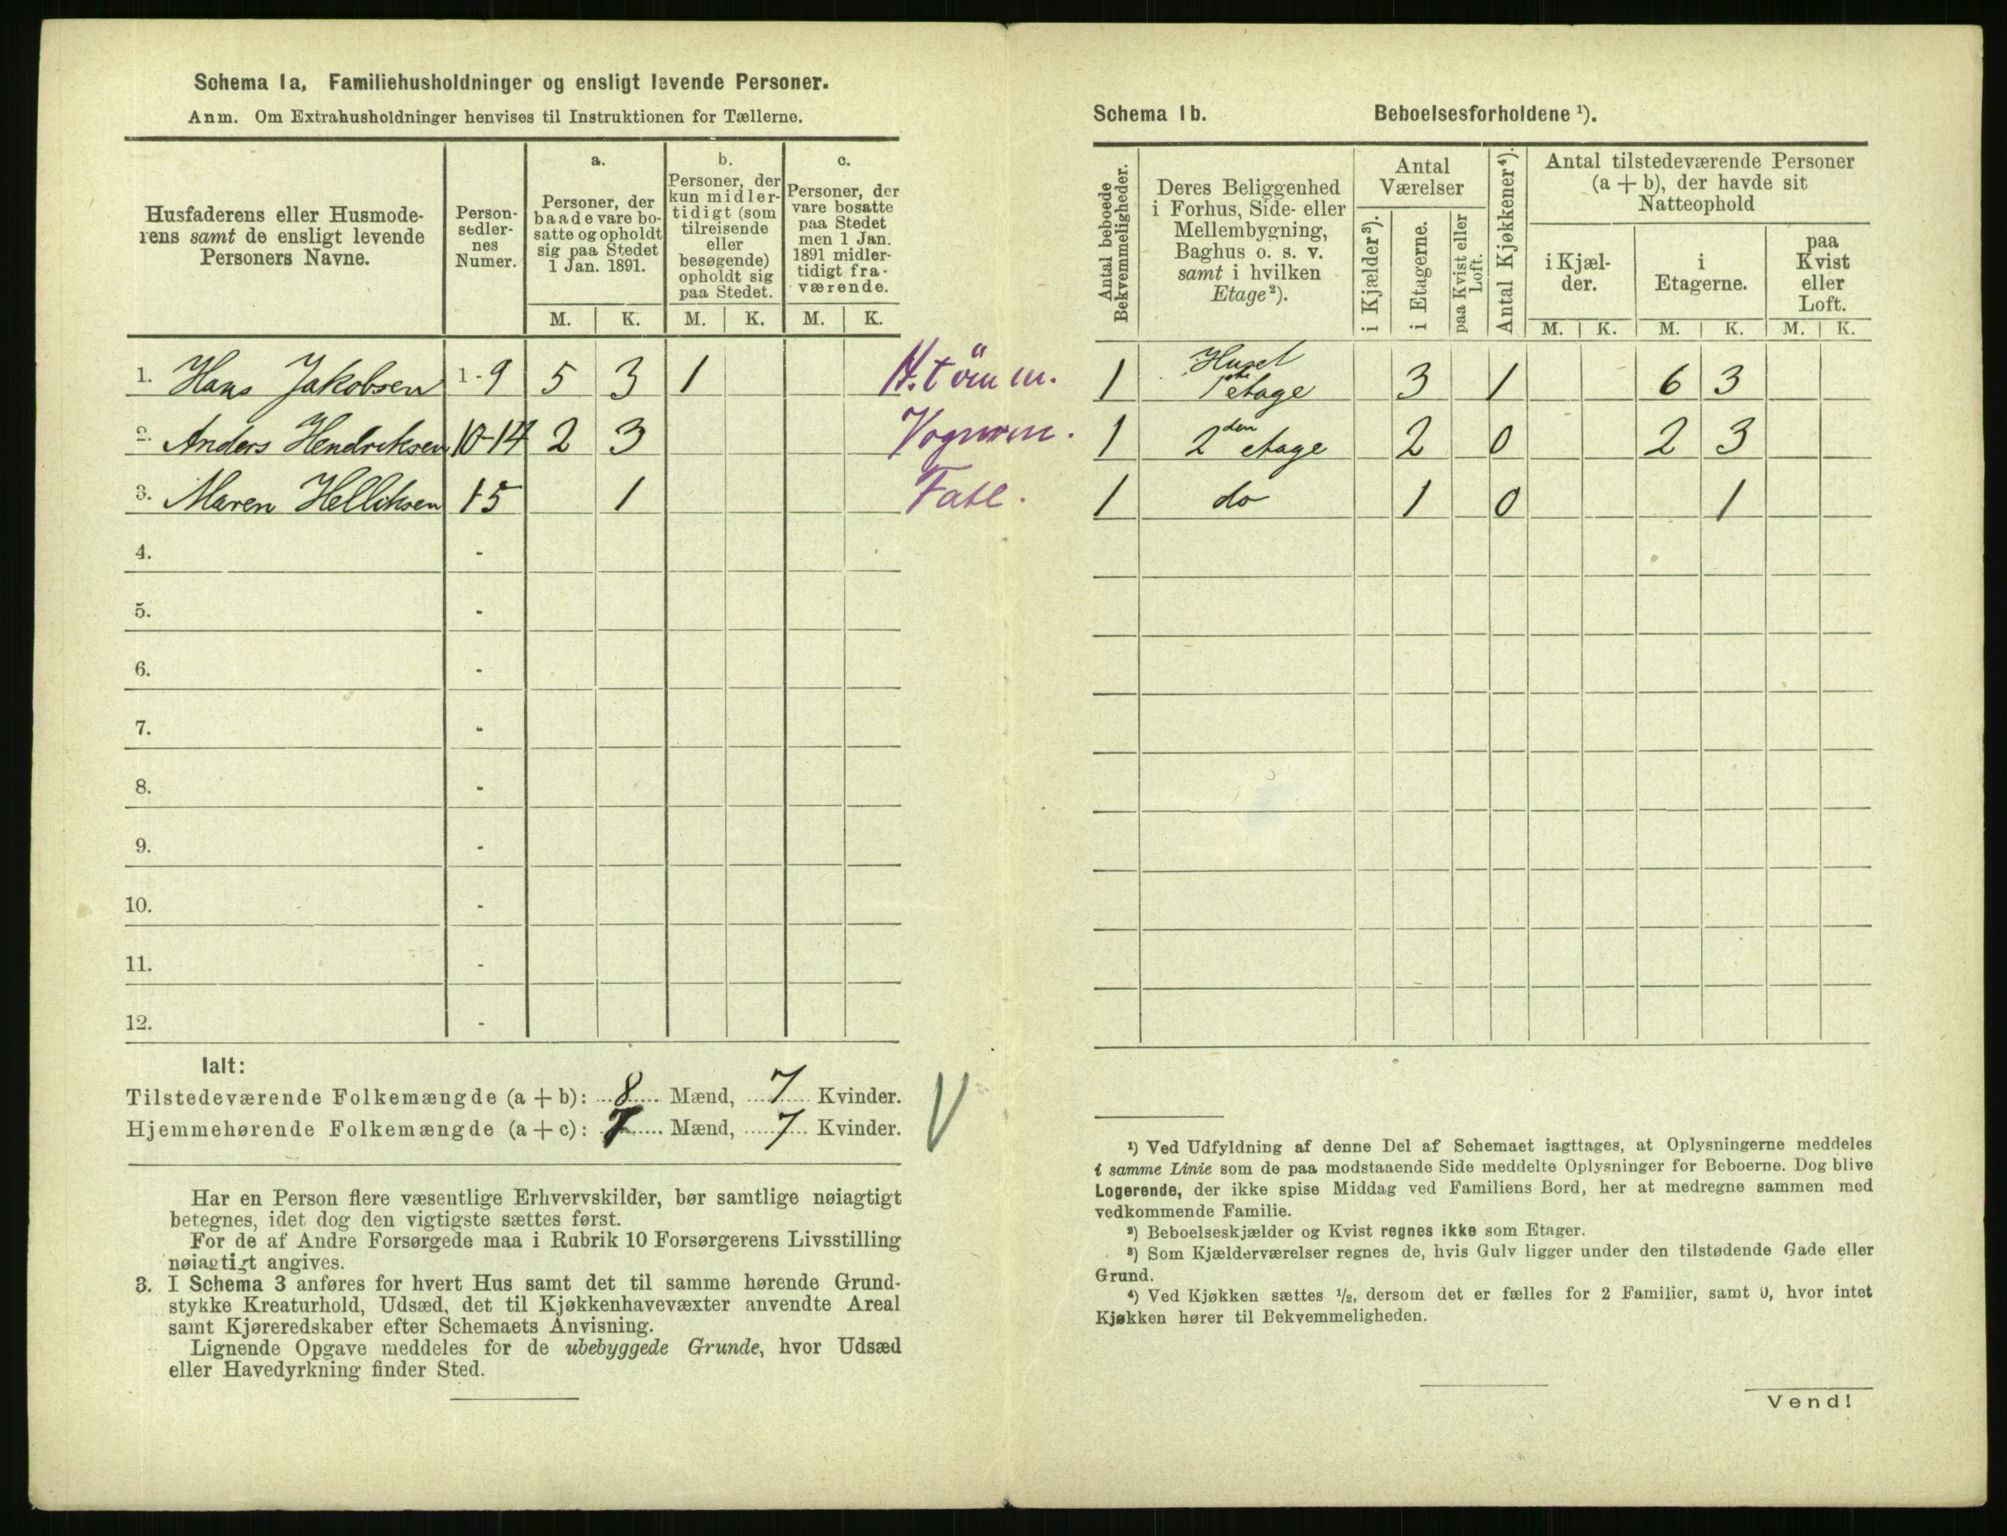 Schema 1a, Familiehusholdninger og ensligt levende Personer.
Anm. Om Extrahusholdninger henvises til Instruktionen for Tællerne.
Husfaderens eller Husmoderens samt de ensligt levende Personers Navne.
Personsedlernes Numer.
a.
Personer, der baade vare bosatte og opholdt sig paa Stedet 1 Jan. 1891.
b.
Personer, der kun midlertidigt (som tilreisende eller besøgende) opholdt sig paa Stedet.
c.
Personer, der vare bosatte paa Stedet men 1 Jan. 1891 midlertidigt fraværende.
M. K. M. K. M. K.
1. Hans Jakobsen 1-9 5 3 1
2. Anders Hendriksen 10-14 2 3
3. Maren Helliksen 15 1 Fatl.
4. -
5. -
6. -
7. -
8. -
9. -
10. -
11. -
12. -
Ialt:
Tilstedeværende Folkemængde (a + b): 8 Mænd, 7 Kvinder.
Hjemmehørende Folkemængde (a + c): 7 Mænd, 7 Kvinder.
Har en Person flere væsentlige Erhvervskilder, bør samtlige nøiagtigt
betegnes, idet dog den vigtigste sættes først.
For de af Andre Forsørgede maa i Rubrik 10 Forsørgerens Livsstilling
nøiagtigt angives.
3. I Schema 3 anføres for hvert Hus samt det til samme hørende Grund-
stykke Kreaturhold, Udsæd, det til Kjøkkenhavevæxter anvendte Areal
samt Kjøreredskaber efter Schemaets Anvisning.
Lignende Opgave meddeles for de ubebyggede Grunde, hvor Udsæd
eller Havedyrkning finder Sted.
Schema 1b. Beboelsesforholdene ¹).
Antal beboede Bekvemmeligheder.
Deres Beliggenhed i Forhus, Side- eller Mellembygning, Baghus o. s. v. samt i hvilken Etage²).
Antal Værelser
i Kjælder³).
i Etagerne.
paa Kvist eller Loft.
Antal Kjøkkener⁴).
Antal tilstedeværende Personer (a + b), der havde sit Natteophold
i Kjælder.
i Etagerne.
paa Kvist eller Loft.
M. K. M. K. M. K.
1 Huset 1ste etage 3 1 6 3
1 2den etage 2 0 2 3
1 do 1 0 1
¹) Ved Udfyldning af denne Del af Schemaet iagttages, at Oplysningerne meddeles
i samme Linie som de paa modstaaende Side meddelte Oplysninger for Beboerne. Dog blive
Logerende, der ikke spise Middag ved Familiens Bord, her at medregne sammen med
vedkommende Familie.
²) Beboelseskjælder og Kvist regnes ikke som Etager.
³) Som Kjælderværelser regnes de, hvis Gulv ligger under den tilstødende Gade eller
Grund.
⁴) Ved Kjøkken sættes ½, dersom det er fælles for 2 Familier, samt 0, hvor intet
Kjøkken hører til Bekvemmeligheden.
Vend!